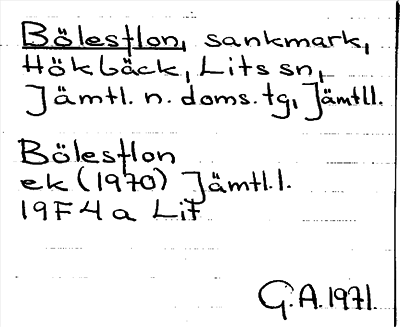 Böleston, sankmark,
Hökbäck, Lits sn,
Jämtl. n. doms. tg, Jämtll.
Böleston
ek (1970) Jämtl.l.
19F 4 a Lit
G.A. 1971.